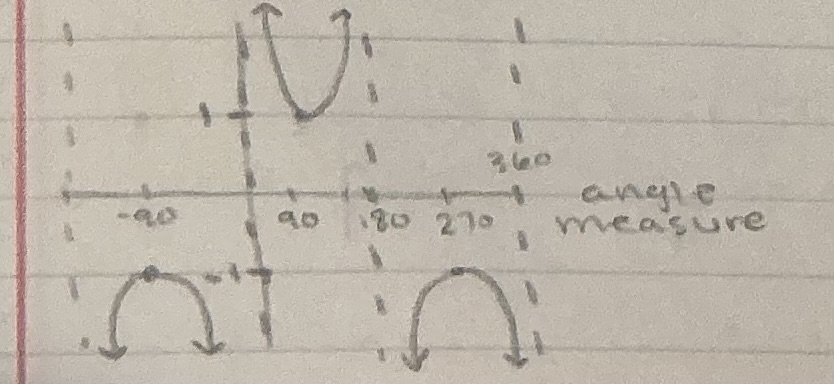 1
360
-90 90 180 270 angle
measure
-1